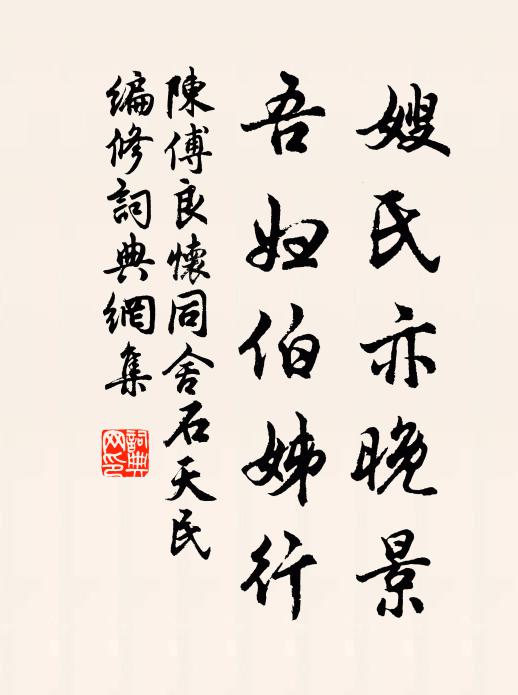 嫂氏亦晚景
吾妇伯姊行
陳傅良懷同舍石天民
編修詞典網集
詞典网印